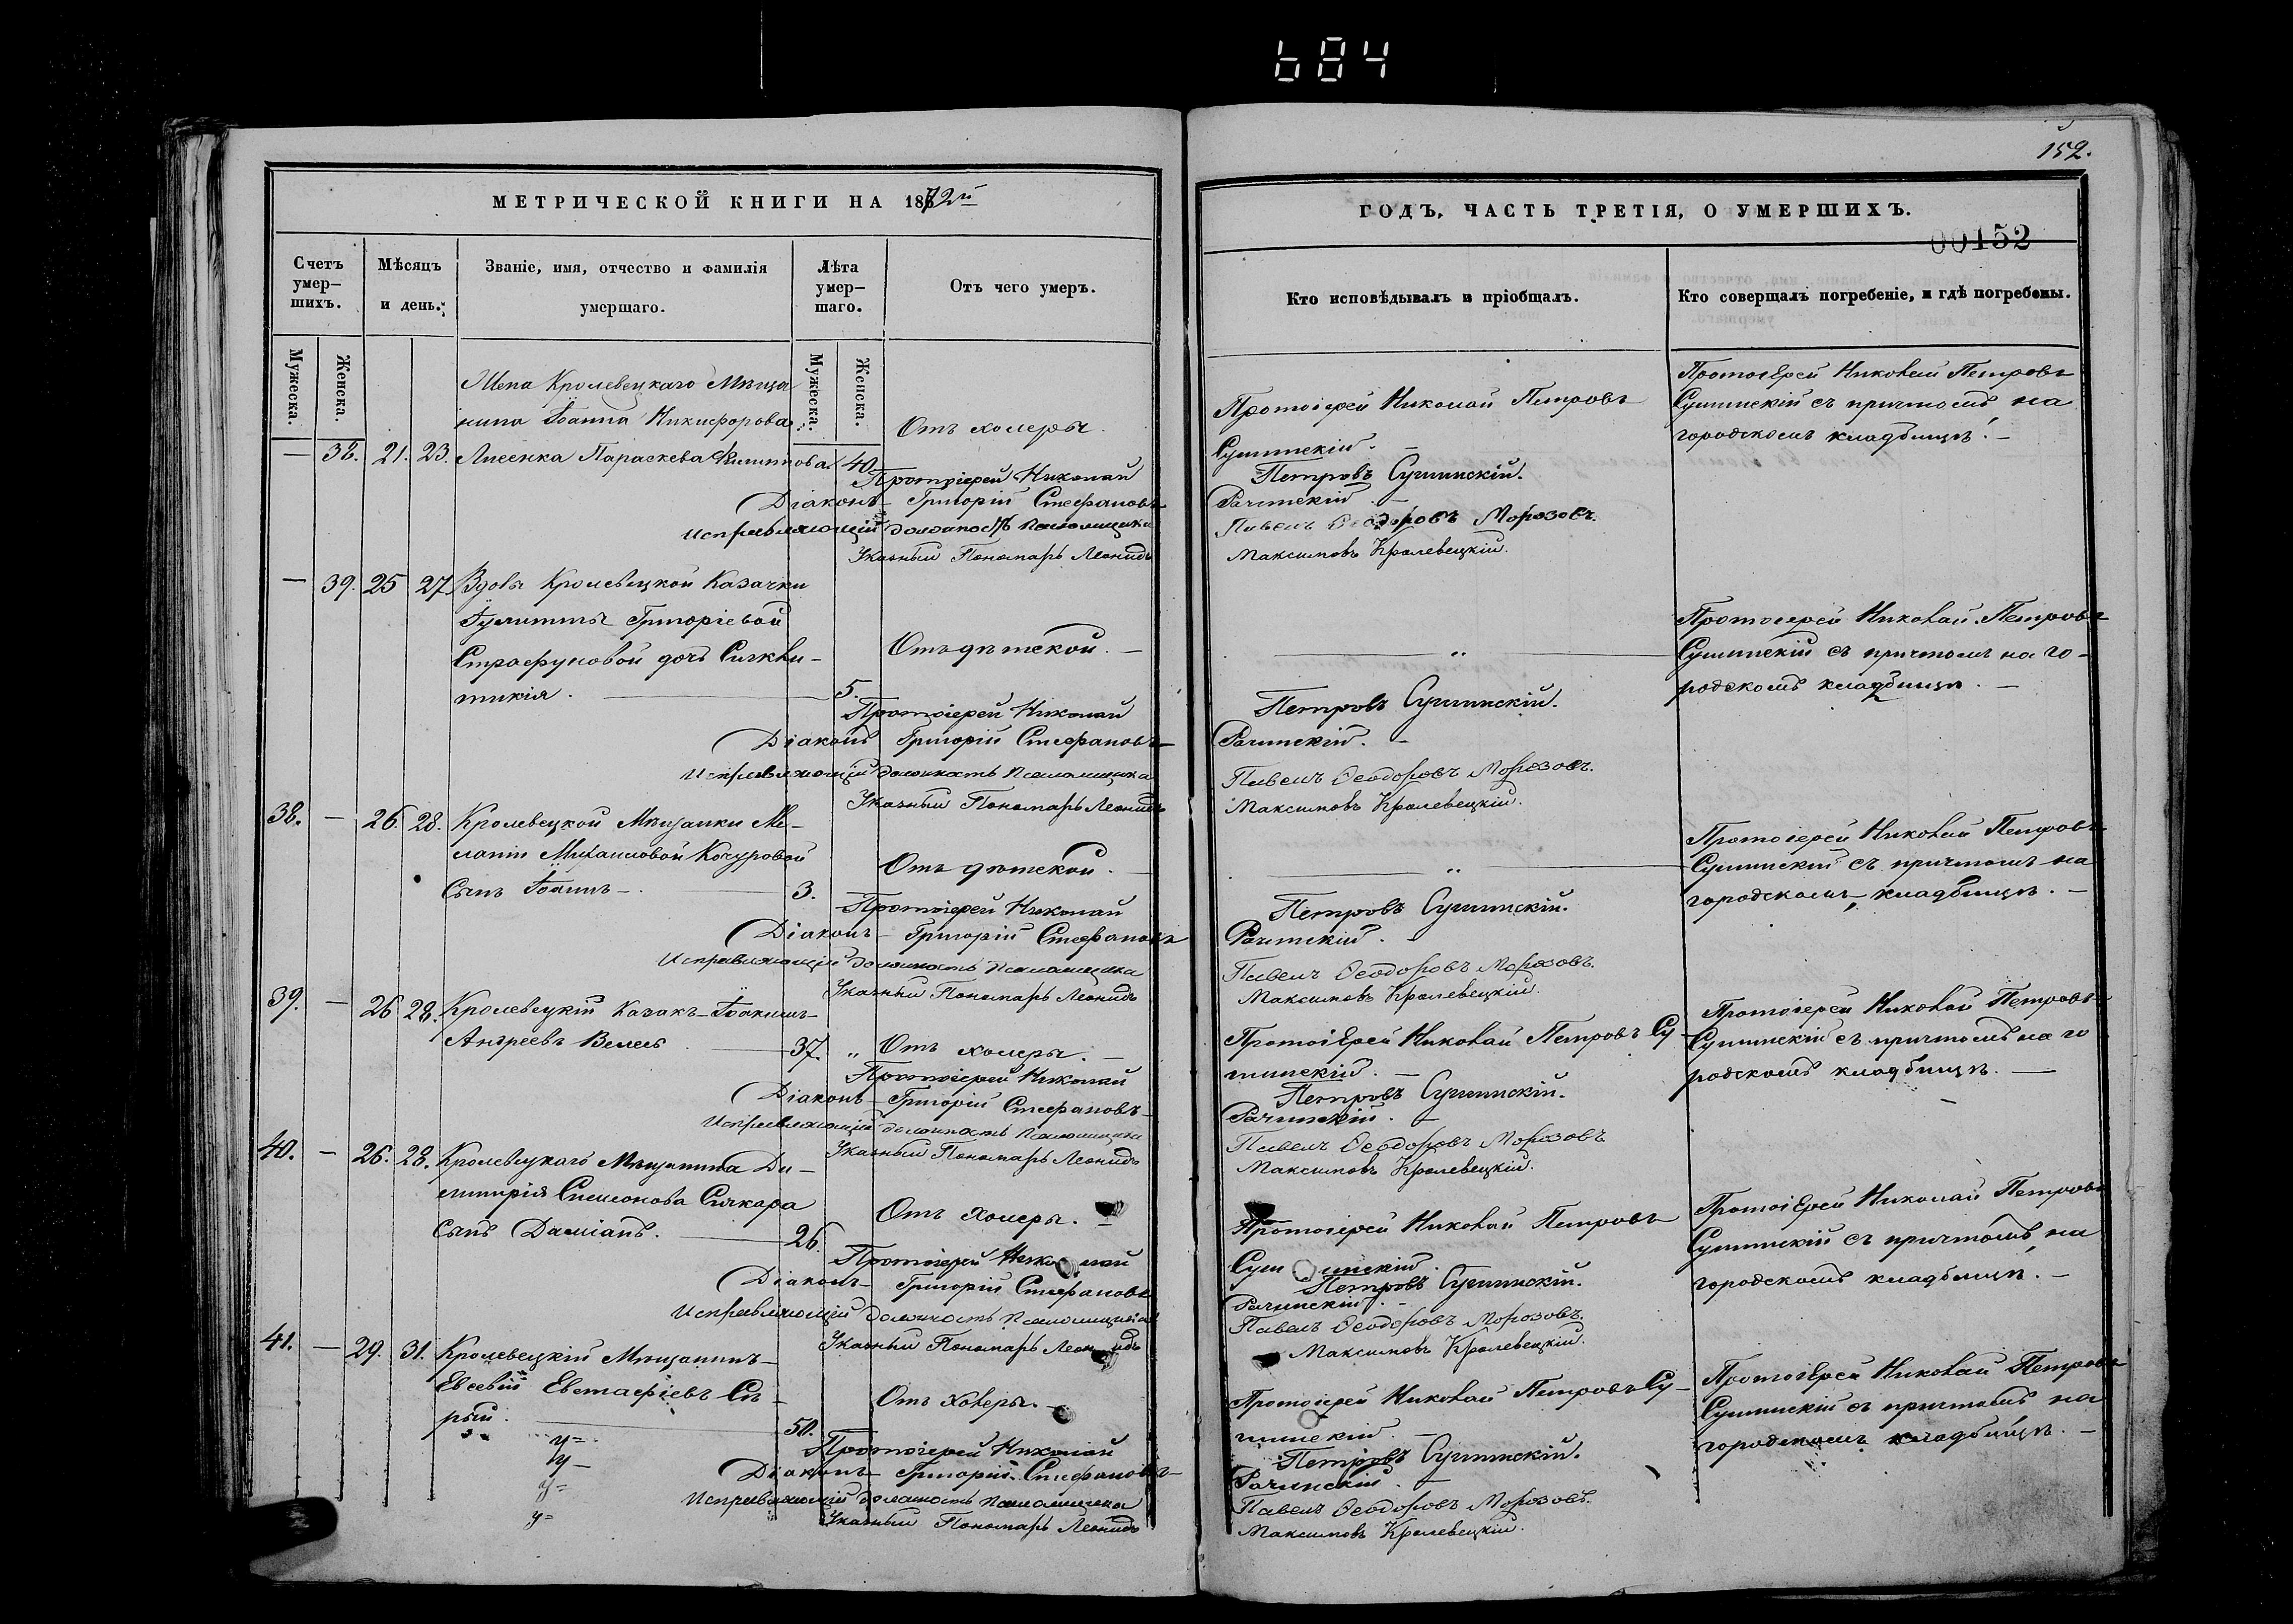 684
152.
МЕТРИЧЕСКОЙ КНИГИ НА 1872й
ГОДЪ, ЧАСТЬ ТРЕТІЯ, О УМЕРШИХЪ.
00152
Счетъ умер-шихъ.
Мѣсяцъ и день.
Званіе, имя, отчество и фамилія умершаго.
Лѣта умер-шаго.
Отъ чего умеръ.
Кто исповѣдывалъ и пріобщалъ.
Кто совершалъ погребеніе, и гдѣ погребены.
Мужеска.
Женска.
Мужеска.
Женска.
Жена Кролевецкаго Мѣща-
нина Іоанна Никифорова
— 38. 21. 23. Лисенка Параскева Филиппова 40.
Отъ холеры.
Протоіерей Николай Петровъ
Сушинскій. —
Протоіерей Николай Петровъ
Сушинскій съ причтомъ, на
городскомъ кладбищѣ. —
Протоіерей Николай Петровъ Сушинскій.
Діаконъ Григорій Стефановъ Рачинскій —
Исправляющій должность Псаломщика Павелъ Ѳеодоровъ Морозовъ.
Указный Пономарь Леонидъ Максимовъ Кролевецкій.
— 39. 25 27 Вдовы Кролевецкой Казачки
Іулитты Григоріевой
Страфуновой дочь
5.
Отъ дѣтской. —
„
Протоіерей Николай Петровъ
Сушинскій съ причтомъ на го-
родскомъ кладбищѣ. —
Протоіерей Николай Петровъ Сушинскій.
Діаконъ Григорій Стефановъ Рачинскій. —
Исправляющій должность Псаломщика Павелъ Ѳеодоровъ Морозовъ.
Указный Пономарь Леонидъ Максимовъ Кролевецкій.
38. — 26. 28. Кролевецкой Мѣщанки Ме-
ланіи Михайловой Кочуровой
Сынъ Іоаннъ — 3.
Отъ дѣтской. —
„
Протоіерей Николай Петровъ
Сушинскій съ причтомъ на
городскомъ, кладбищѣ. —
Протоіерей Николай Петровъ Сушинскій.
Діаконъ — Григорій Стефановъ Рачинскій. —
Исправляющій должность Псаломщика Павелъ Ѳеодоровъ Морозовъ.
Указный Пономарь Леонидъ Максимовъ Кролевецкій.
39. — 26 28. Кролевецкій Казакъ — Іоакимъ
Андреевъ Велесъ 37. „
Отъ холеры. —
Протоіерей Николай Петровъ Су-
шинскій. —
Протоіерей Николай Петровъ
Сушинскій съ причтомъ на го
родскомъ кладбищѣ. —
Протоіерей Николай Петровъ Сушинскій.
Діаконъ — Григорій Стефановъ Рачинскій. —
Исправляющій должность Псаломщика Павелъ Ѳеодоровъ Морозовъ
Указный Пономарь Леонидъ Максимовъ Кролевецкій.
40. — 26. 28. Кролевецкаго Мѣщанина Ди-
митрія Симеонова Сичкара
сынъ Даміанъ. 26.
Отъ Холеры. —
Протоіерей Николай Петровъ
Сушинскій.
Протоіерей Николай Петровъ
Сушинскій съ причтомъ, на
городскомъ кладбищѣ. —
Протоіерей Николай Петровъ Сушинскій.
Діаконъ — Григорій Стефановъ Рачинскій. —
Исправляющій должность Псаломщика Павелъ Ѳеодоровъ Морозовъ.
Указный Пономарь Леонидъ Максимовъ Кролевецкій.
41. — 29. 31. Кролевецкій Мѣщанинъ —
Евсевій Евстафіевъ Сѣ-
рый. 50.
Отъ Холеры. —
Протоіерей Николай Петровъ Су-
шинскій. —
Протоіерей Николай Петровъ
Сушинскій съ причтомъ на
городскомъ кладбищѣ. —
Протоіерей Николай Петровъ Сушинскій.
Діаконъ — Григорій Стефановъ Рачинскій. —
Исправляющій должность Псаломщика Павелъ Ѳеодоровъ Морозовъ.
Указный Пономарь Леонидъ Максимовъ Кролевецкій.